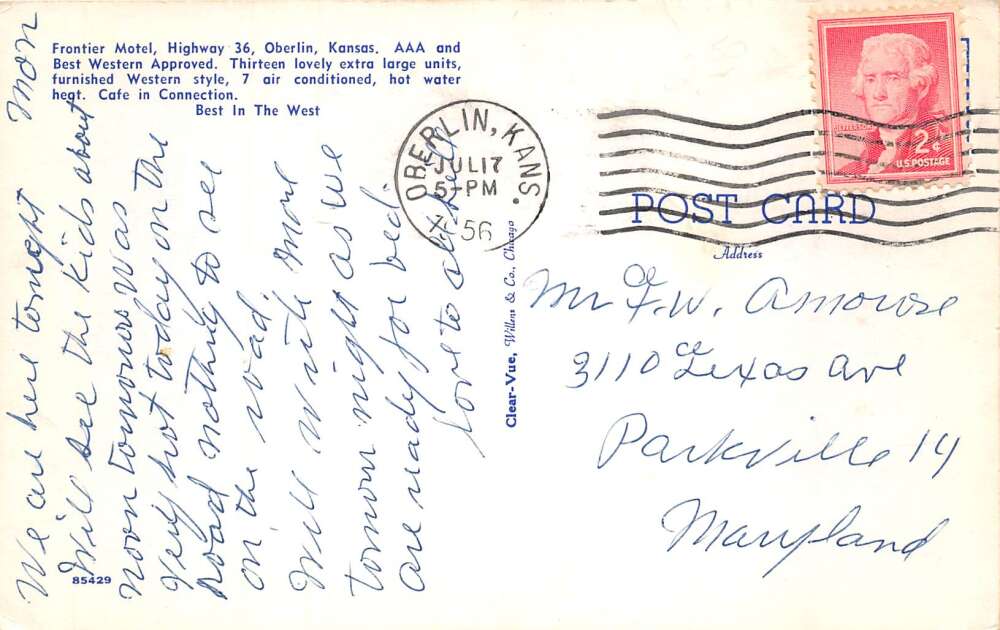 Frontier Motel, Highway 36, Oberlin, Kansas. AAA and
Best Western Approved. Thirteen lovely extra large units,
furnished Western style, 7 air conditioned, hot water
heat. Cafe in Connection.
Best In The West
Mon
We are here tonight
Will see the kids about
noon tomorrow was
Very hot today on the
road nothing to see
on the road.
Will write more
tomorr night as we
are ready for bed.
love to all
85429
Clear-Vue, Willens & Co., Chicago
OBERLIN, KANS.
JUL 17
5-PM
56
JEFFERSON
2¢
U.S. POSTAGE
POST CARD
Address
Mr F. W. Amorose
3110 Texas Ave
Parkville 14
Maryland